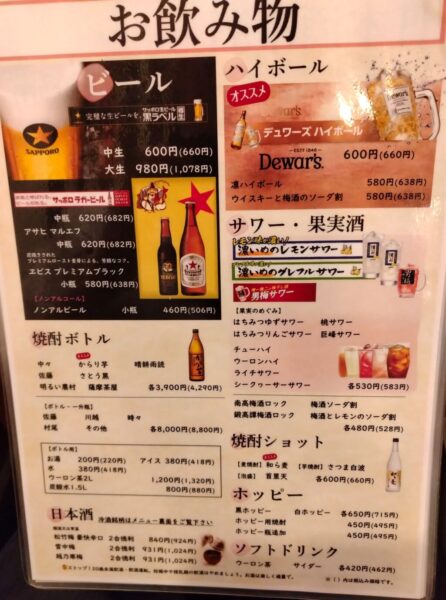 お飲み物
ビール
完璧な生ビールを。
サッポロ生ビール
黒ラベル
SAPPORO
中生 600円(660円)
大生 980円(1,078円)
サッポロ ラガービール
中瓶 620円(682円)
アサヒ マルエフ
中瓶 620円(682円)
プレミアムロースト麦芽による、芳醇なコク。
エビス プレミアムブラック
小瓶 580円(638円)
【ノンアルコール】
ノンアルビール 小瓶 460円(506円)
焼酎ボトル
中々 からり芋 晴耕雨読
佐藤 さとう黒
明るい農村 薩摩茶屋 各3,900円(4,290円)
【ボトル・一升瓶】
佐藤 川越 時々
村尾 その他 各8,000円(8,800円)
【ボトル用】
お湯 200円(220円) アイス 380円(418円)
水 380円(418円)
ウーロン茶2L 1,200円(1,320円)
炭酸水1.5L 800円(880円)
日本酒
冷酒銘柄はメニュー裏面をご覧下さい
松竹梅 豪快辛口 2合徳利 840円(924円)
菅中梅 2合徳利 931円(1,024円)
越乃寒梅 2合徳利 931円(1,024円)
ハイボール
オススメ
Dewar's
デュワーズ ハイボール
Dewar's 600円(660円)
凛ハイボール 580円(638円)
ウイスキーと梅酒のソーダ割 580円(638円)
サワー・果実酒
レモン味の濃い!
濃いめのレモンサワー
濃いめのグレフルサワー
男梅サワー
【果実のめぐみ】
はちみつゆずサワー 桃サワー
はちみつりんごサワー 巨峰サワー
チューハイ
ウーロンハイ
ライチサワー
シークヮーサーサワー 各530円(583円)
南高梅酒ロック 梅酒ソーダ割
鍛高譚梅酒ロック 梅酒とレモンのソーダ割
各480円(528円)
焼酎ショット
【麦焼酎】和ら麦 【芋焼酎】さつま白波
【泡盛】首里天 各600円(660円)
ホッピー
黒ホッピー 白ホッピー 各650円(715円)
ホッピー用焼酎 450円(495円)
ホッピー瓶追加 450円(495円)
ソフトドリンク
ウーロン茶 サイダー 各420円(462円)
※( )内は税込み価格です。